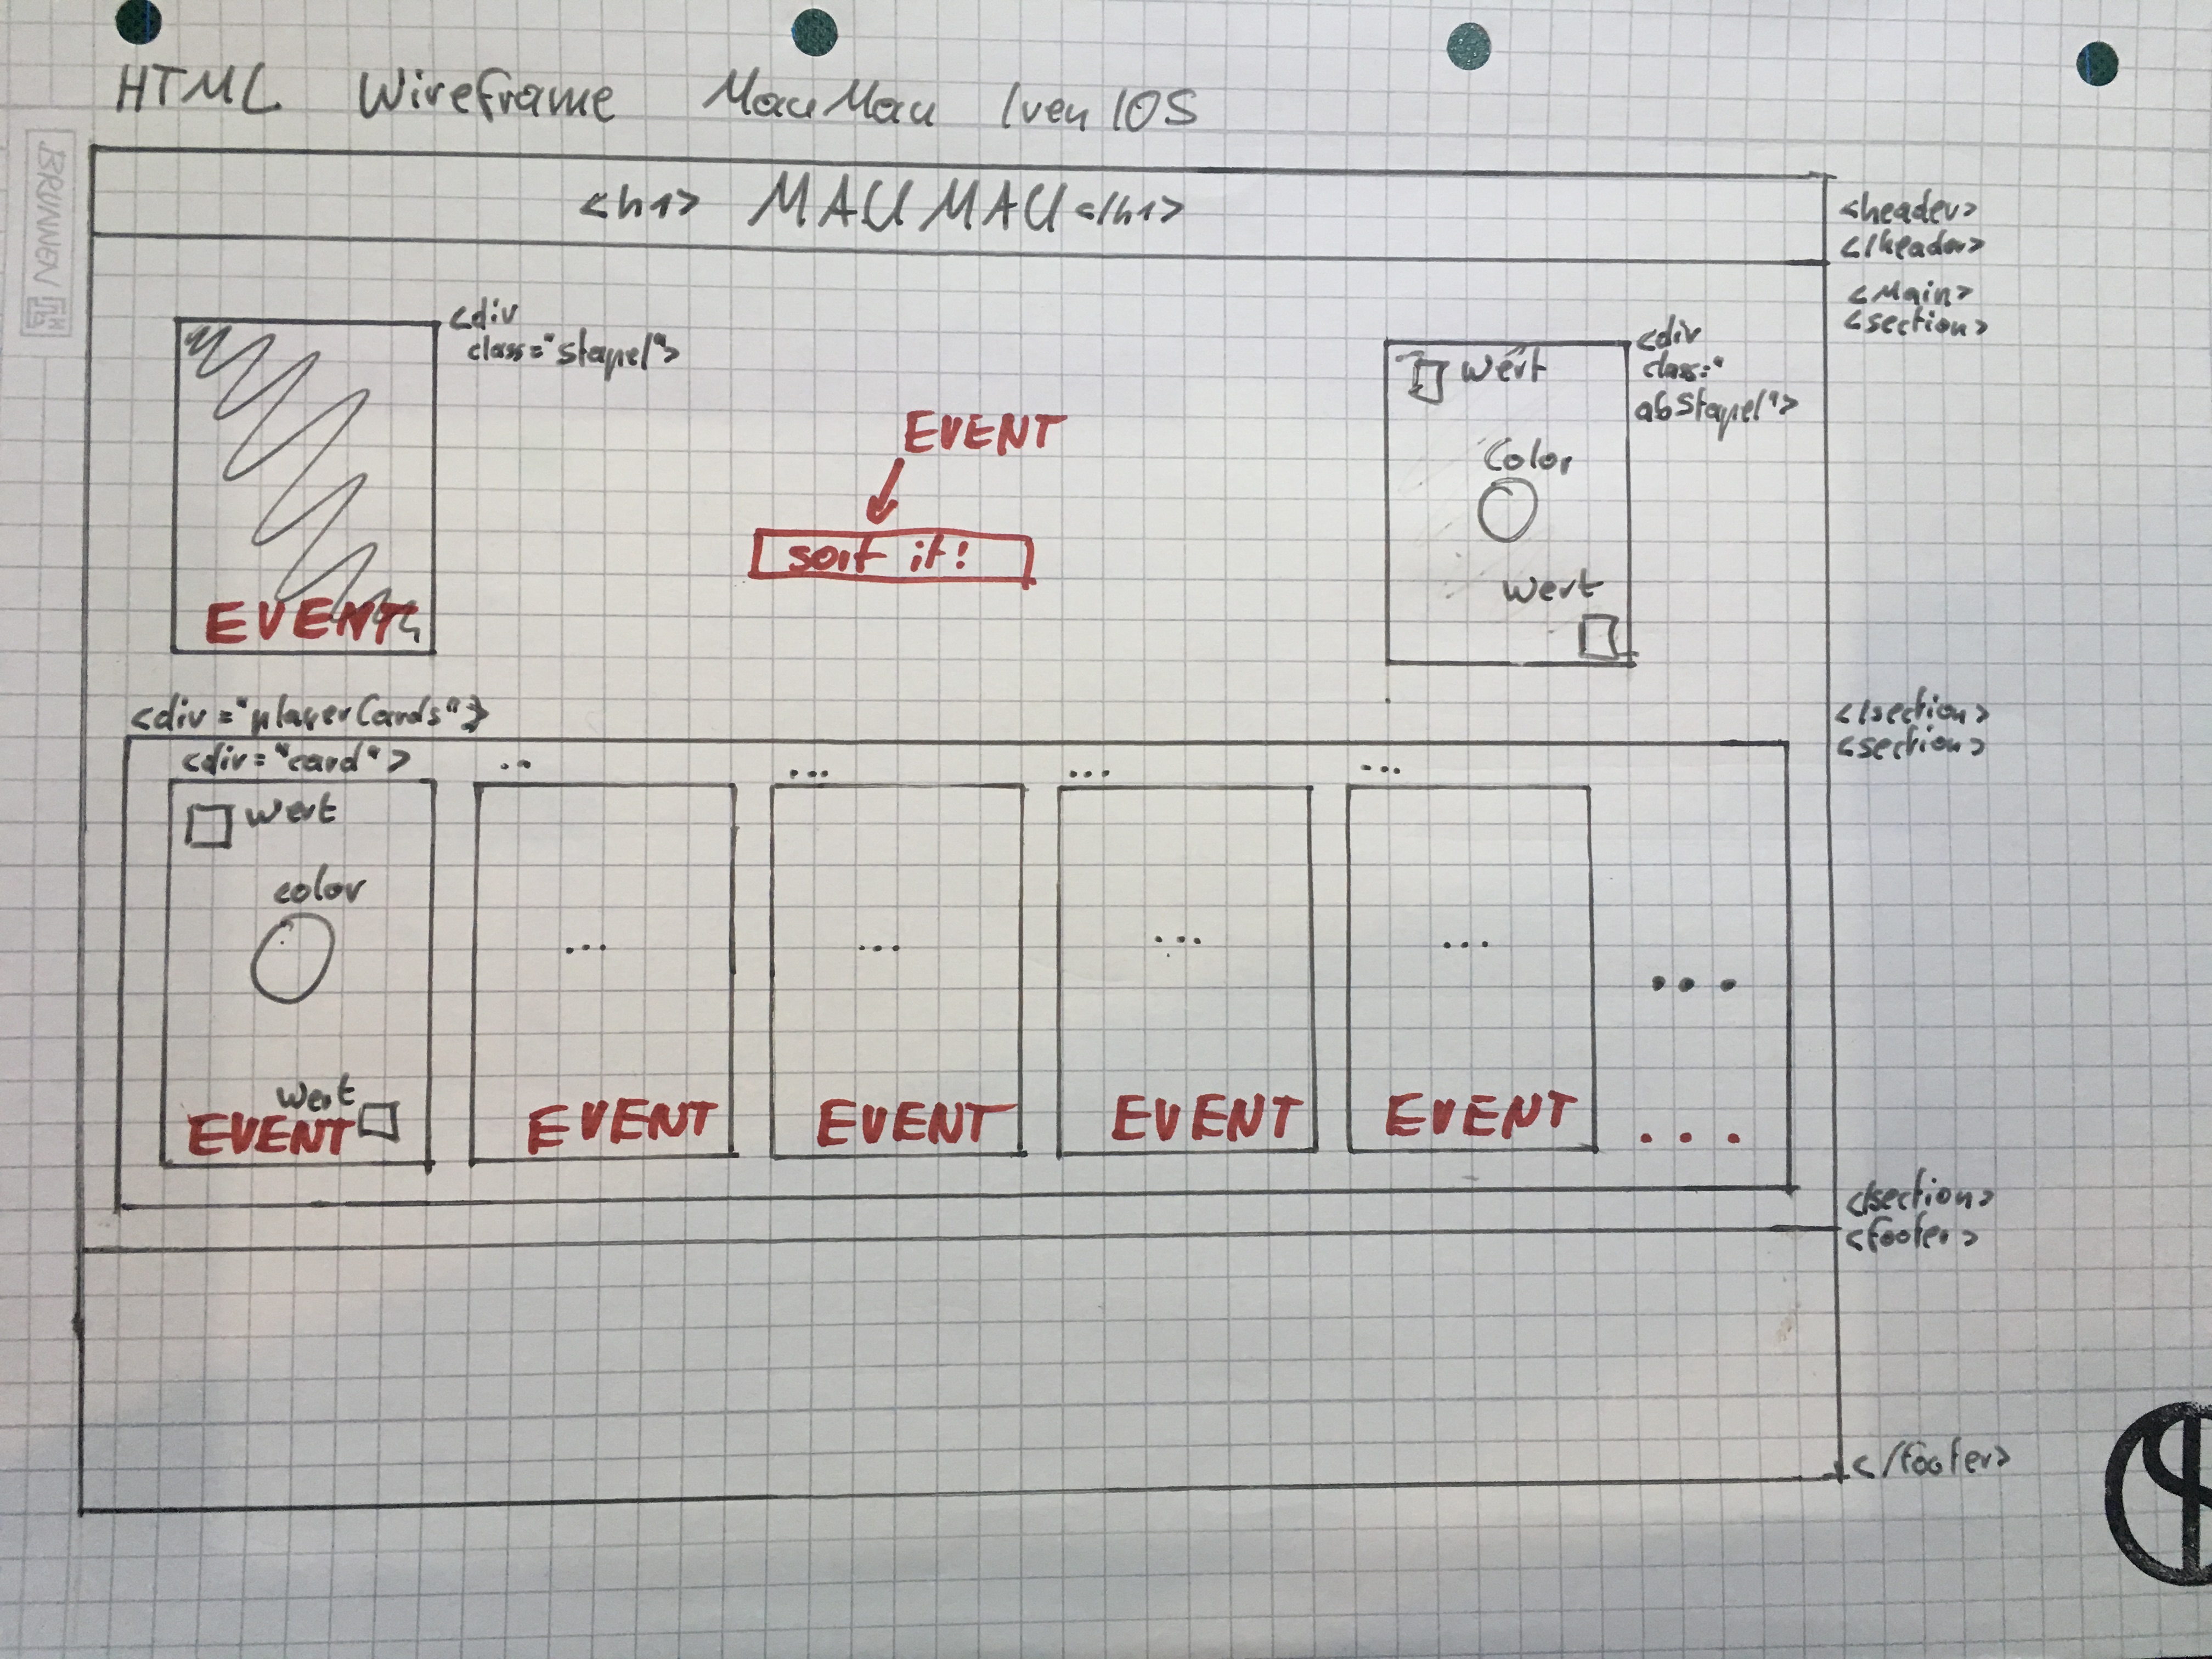 BRUNNEN
HTML Wireframe MauMau Iven 10S
<h1> MAU MAU </h1>
<header>
</header>
<Main>
<section>
<div
class="stapel">
EVENT
EVENT
sort it!
wert
Color
wert
<div
class="
abStapel">
</section>
<section>
<div="playerCards">
<div="card">
wert
color
wert
EVENT
..
...
EVENT
...
...
EVENT
...
...
EVENT
...
...
EVENT
...
...
</section>
<footer>
</footer>